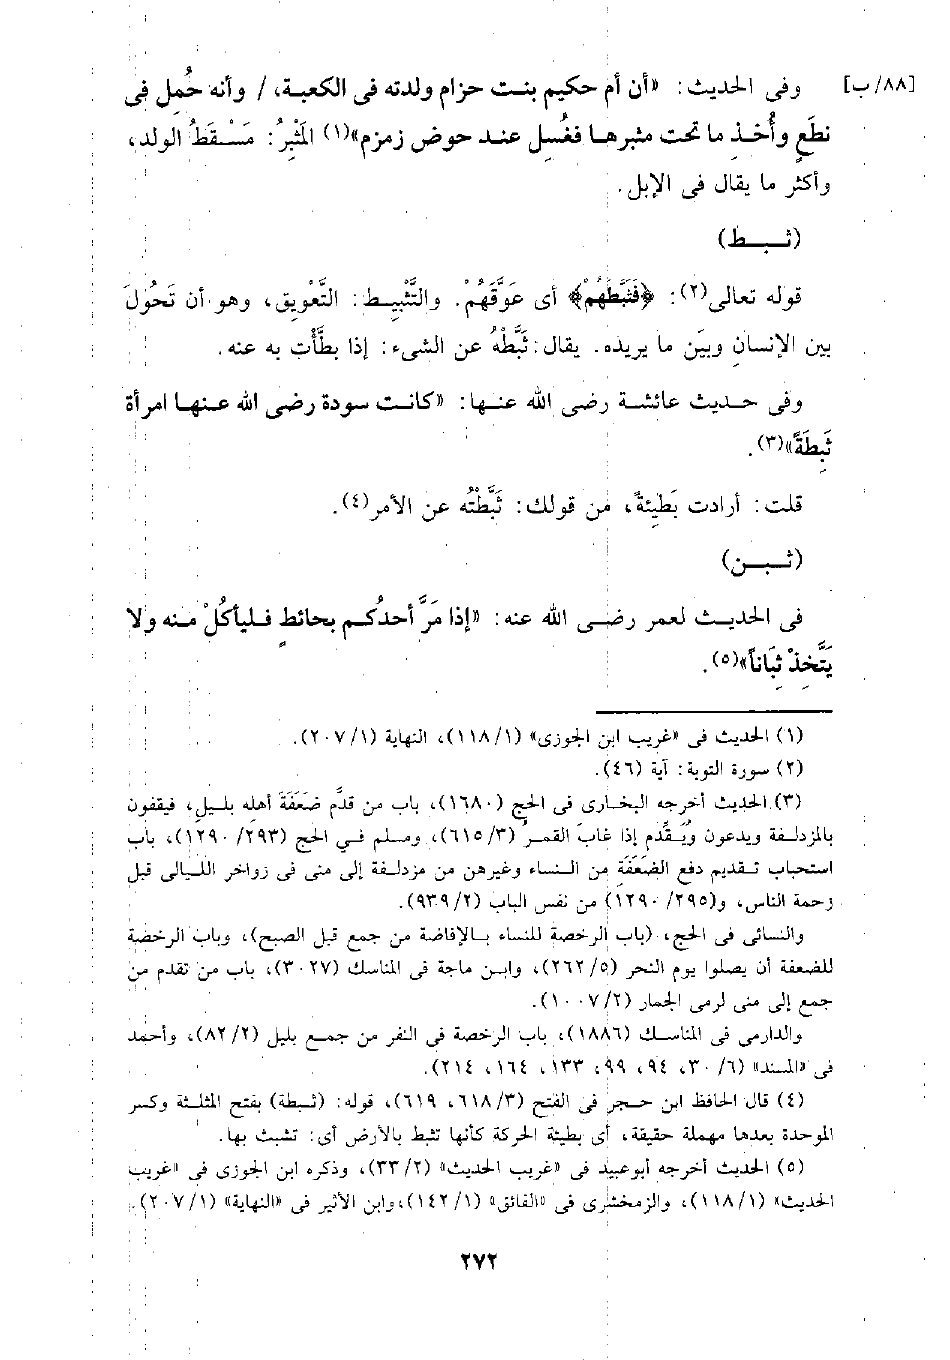 [٨٨/ب] وفى الحديث: «أن أم حكيم بنت حزام ولدته فى الكعبة، / وأنه حُمِل فى
نطَعٍ وأُخذ ما تحت مثبرها فغُسِل عند حوض زمزم»(١) المَثْبِرُ: مَسْقَطُ الولد،
وأكثر ما يقال فى الإبل.
(ثبط)
قوله تعالى(٢): ﴿فَثَبَّطَهُمْ﴾ أى عَوَّقَهُمْ. والتَّثْبِيط: التَّعْوِيق، وهو أن تَحُولَ
بين الإنسانِ وبيَن ما يريده. يقال: ثَبَّطْهُ عن الشىء: إذا بطَّأْت به عنه.
وفى حديث عائشة رضى الله عنها: «كانت سودة رضى الله عنها امرأة
ثَبِطَةً»(٣).
قلت: أرادت بَطِيئةً، من قولك: ثَبَّطْتُه عن الأمر(٤).
(ثبن)
فى الحديث لعمر رضى الله عنه: «إذا مَرَّ أحدُكم بحائطٍ فليأكُلْ منه ولا
يَتَّخِذْ ثِبَاناً»(٥).
(١) الحديث فى «غريب ابن الجوزى» (١١٨/١)، النهاية (٢٠٧/١).
(٢) سورة التوبة: آية (٤٦).
(٣) الحديث أخرجه البخارى فى الحج (١٦٨٠)، باب من قدَّم ضَعَفَةَ أهله بليلٍ، فيقفون
بالمزدلفة ويدعون ويُقَدم إذا غابَ القمر (٦١٥/٣)، ومسلم في الحج (١٢٩٠/٢٩٣)، باب
استحباب تقديم دفع الضَعَفَةِ من النساء وغيرهن من مزدلفة إلى منى فى زواخر الليالى قبل
زحمة الناس، و(١٢٩٠/٢٩٥) من نفس الباب (٩٣٩/٢).
والنسائى فى الحج، (باب الرخصة للنساء بالإفاضة من جمع قبل الصبح)، وباب الرخصة
للضعفة أن يصلوا يوم النحر (٢٦٢/٥)، وابن ماجة فى المناسك (٣٠٢٧)، باب من تقدم من
جمع إلى منى لرمى الجمار (١٠٠٧/٢).
والدارمى فى المناسك (١٨٨٦)، باب الرخصة فى النفر من جمع بليل (٨٢/٢)، وأحمد
فى «المسند» (٣٠/٦، ٩٤، ٩٩، ١٣٣، ١٦٤، ٢١٤).
(٤) قال الحافظ ابن حجر فى الفتح (٦١٨/٣، ٦١٩)، قوله: (ثبطة) بفتح المثلثة وكسر
الموحدة بعدها مهملة خفيفة، أى بطيئة الحركة كأنها تثبط بالأرض أى: تشبث بها.
(٥) الحديث أخرجه أبوعبيد فى «غريب الحديث» (٣٣/٢)، وذكره ابن الجوزى فى «غريب
الحديث» (١١٨/١)، والزمخشرى فى «الفائق» (١٤٢/١)،وابن الأثير فى «النهاية» (٢٠٧/١).
٢٧٢